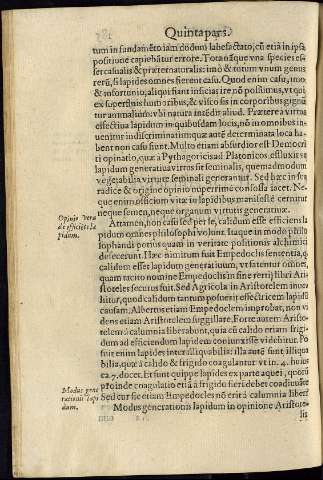 Quinta pars.
tum in fundamẽto iam dodum labefactato, cũ etiã in ipsa
positione capiebãtur errore. Tota nãque vna species es-
ser casualis & præternaturalis: imò & totum vnum genus
rerũ, si lapides omnes fierent casu. Quod enim casu, imo
& infortunio, aliqui fiant inficias ire nõ possimus, vt qui
ex superfluis humoribus, & viscosis in corporibus gignũ
tur animalium: vbi natura inædit aliud. Præterea virtus
effectiua lapidum in quibusdam locis, nõ in omnibus in-
uenitur indiscriminatim quæ autẽ determinata loca ha-
bent non casu fiunt. Multo etiam absurdior est Democri
ti opinatio, quæ à Pythagoricis ad Platonicos effluxit: vt
lapidum generatiua virtus sit seminalis, quemadmodum
vegetabilia virtute seminali generantur. Sed hæc in sea
radice & origine opinio nuperrimè confossa iacet. Ne-
que enim officium vitæ in lapidibus manifestè cernitur
neque semen, neque organum virtutis generatiuæ.
Opinio vera
de efficiẽte la
pidum.
Attamen, non casu sed per se, calidum esse efficiens la
pidum omnes philosophi volunt. Itaque in modo philo
sophandi potius quam in veritate positionis alchimici
defecerunt. Hæc nimitum fuit Empedoclis sententia, q
calidum esset lapidum generatiuum, vt fatentur omnes,
quam tacito nomine Empedoclis in fine terrij libri Ari-
stoteles secutus fuit. Sed Agricola in Aristotelem inue-
hitur, quod calidum tantum posuerit effectricem lapidũ
causam. Albertus etiam Empedoclem improbat, non vi
dens etiam Aristotelem suggillare. Forte autem Aristo-
telem à calumnia liberabunt, quia cũ calido etiam frigi-
dum ad efficiendum lapidem coniunxisse videbitur. Po
suit enim lapides inter illiquabilia: illa autẽ sunt illiqua
bilia, quæ à calido & frigido coagulantur: vt in .4. huius
ca.7. docet. Et sunt quippe lapides ex parte aquei, quorũ
proinde coagulatio etiã à frigido fieri debet coadiuuãte
Sed cur sic etiam Empedocles nõ erit à calumnia liber?
Modus gene
rationis lapi
dum.
Modus generationis lapidum in opinione Aristote-
lis